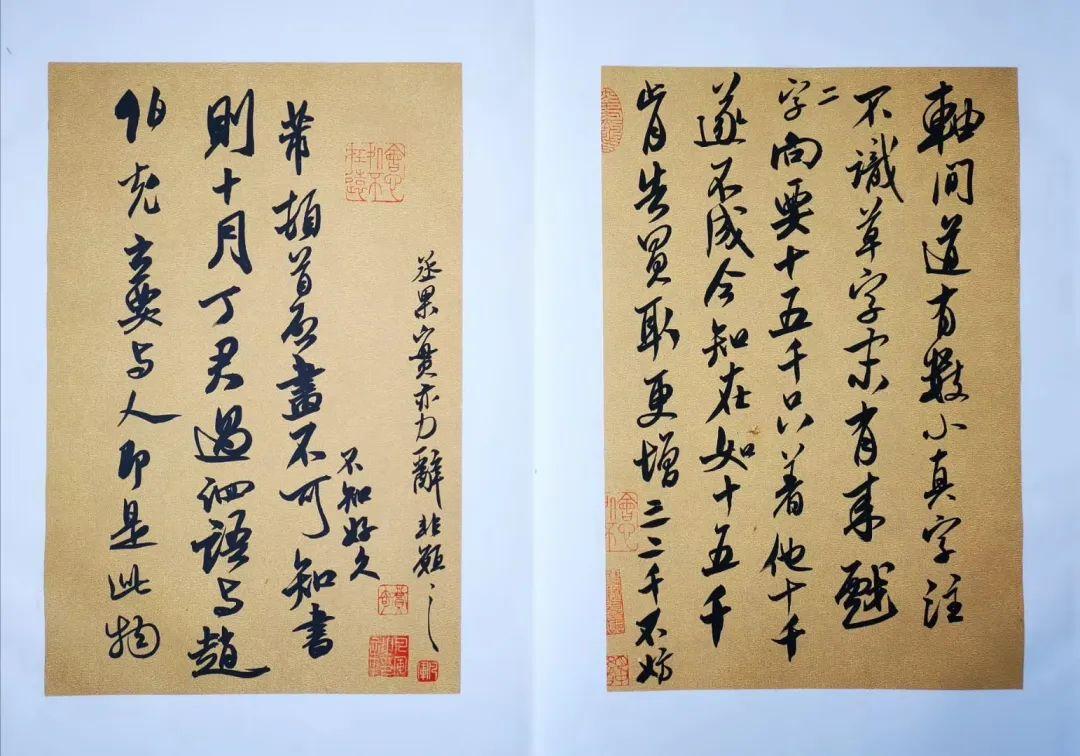 軸間道有數小真字注
不識草字宋有來戲
二字向要十五千只着他十千
遂不成今知在如十五千
肯告買取更增三二千不妨
丞果實亦力辭非願
不知好久
芾頓首啓畫不可知書
則十月丁君過泗語与趙
伯充云要与人即是此物